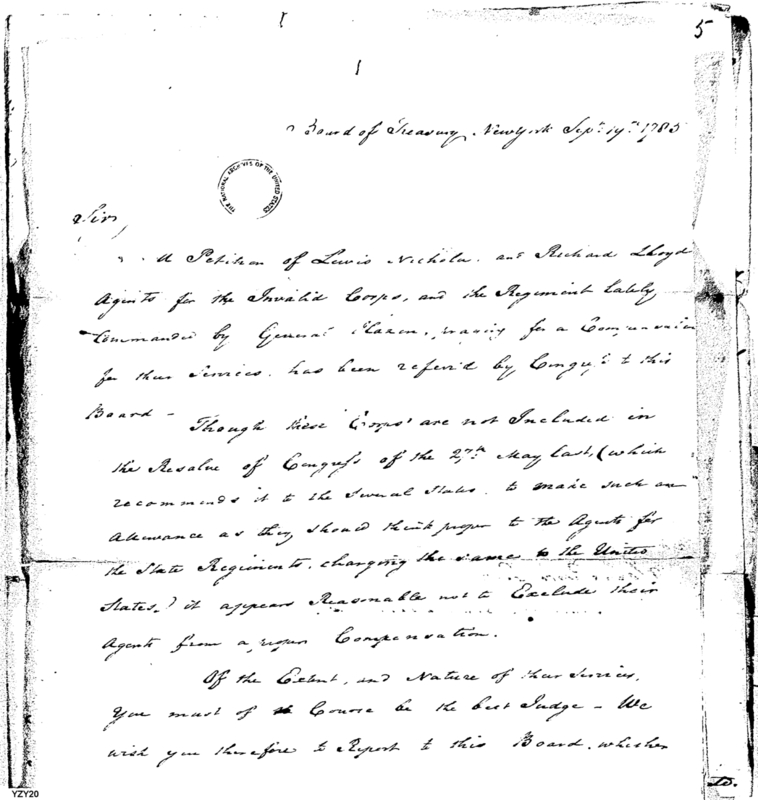 5
Board of Treasury, New York Sept. 19th 1785
THE NATIONAL ARCHIVES OF THE UNITED STATES
Sir,
A Petition of Lewis Nichola, and Richard Lloyd
Agents for the Invalid Corps, and the Regiment lately
Commanded by General Hazen, praying for a Compensation
for their Services, has been referr'd by Congress to this
Board —
Though these Corps are not Included in
the Resolve of Congress of the 27th May last, (which
recommends it to the several States, to make such an
allowance as they should think proper to the Agents for
the State Regiments, charging the same to the United
States,) it appears Reasonable not to Exclude their
Agents from a proper Compensation.
Of the Extent, and Nature of their Services,
You must of Course be the best Judge — We
wish you therefore to Report to this Board, whether
YZY20